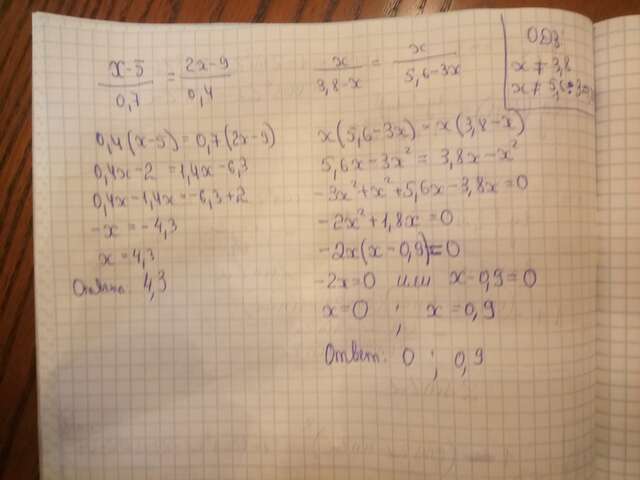 x-5/0,7 = 2x-9/0,4
0,4(x-5)=0,7(2x-9)
0,4x-2 = 1,4x-6,3
0,4x-1,4x=-6,3+2
-x = -4,3
x = 4,3
Ответ: 4,3
x/3,8-x = x/5,6-3x
x(5,6-3x)=x(3,8-x)
5,6x-3x² = 3,8x-x²
-3x²+x²+5,6x-3,8x=0
-2x²+1,8x=0
-2x(x-0,9)=0
-2x=0 или x-0,9=0
x=0 ; x=0,9
Ответ: 0 ; 0,9
ОДЗ
x ≠ 3,8
x ≠ 5,6:3